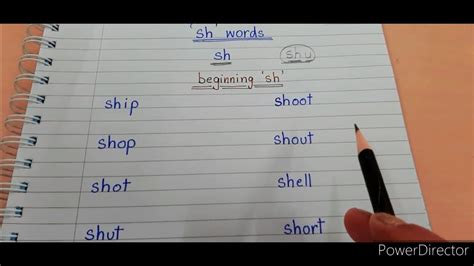 'sh' words
sh shu
beginning 'sh'
ship shoot
shop shout
shot shell
shut short
PowerDirector